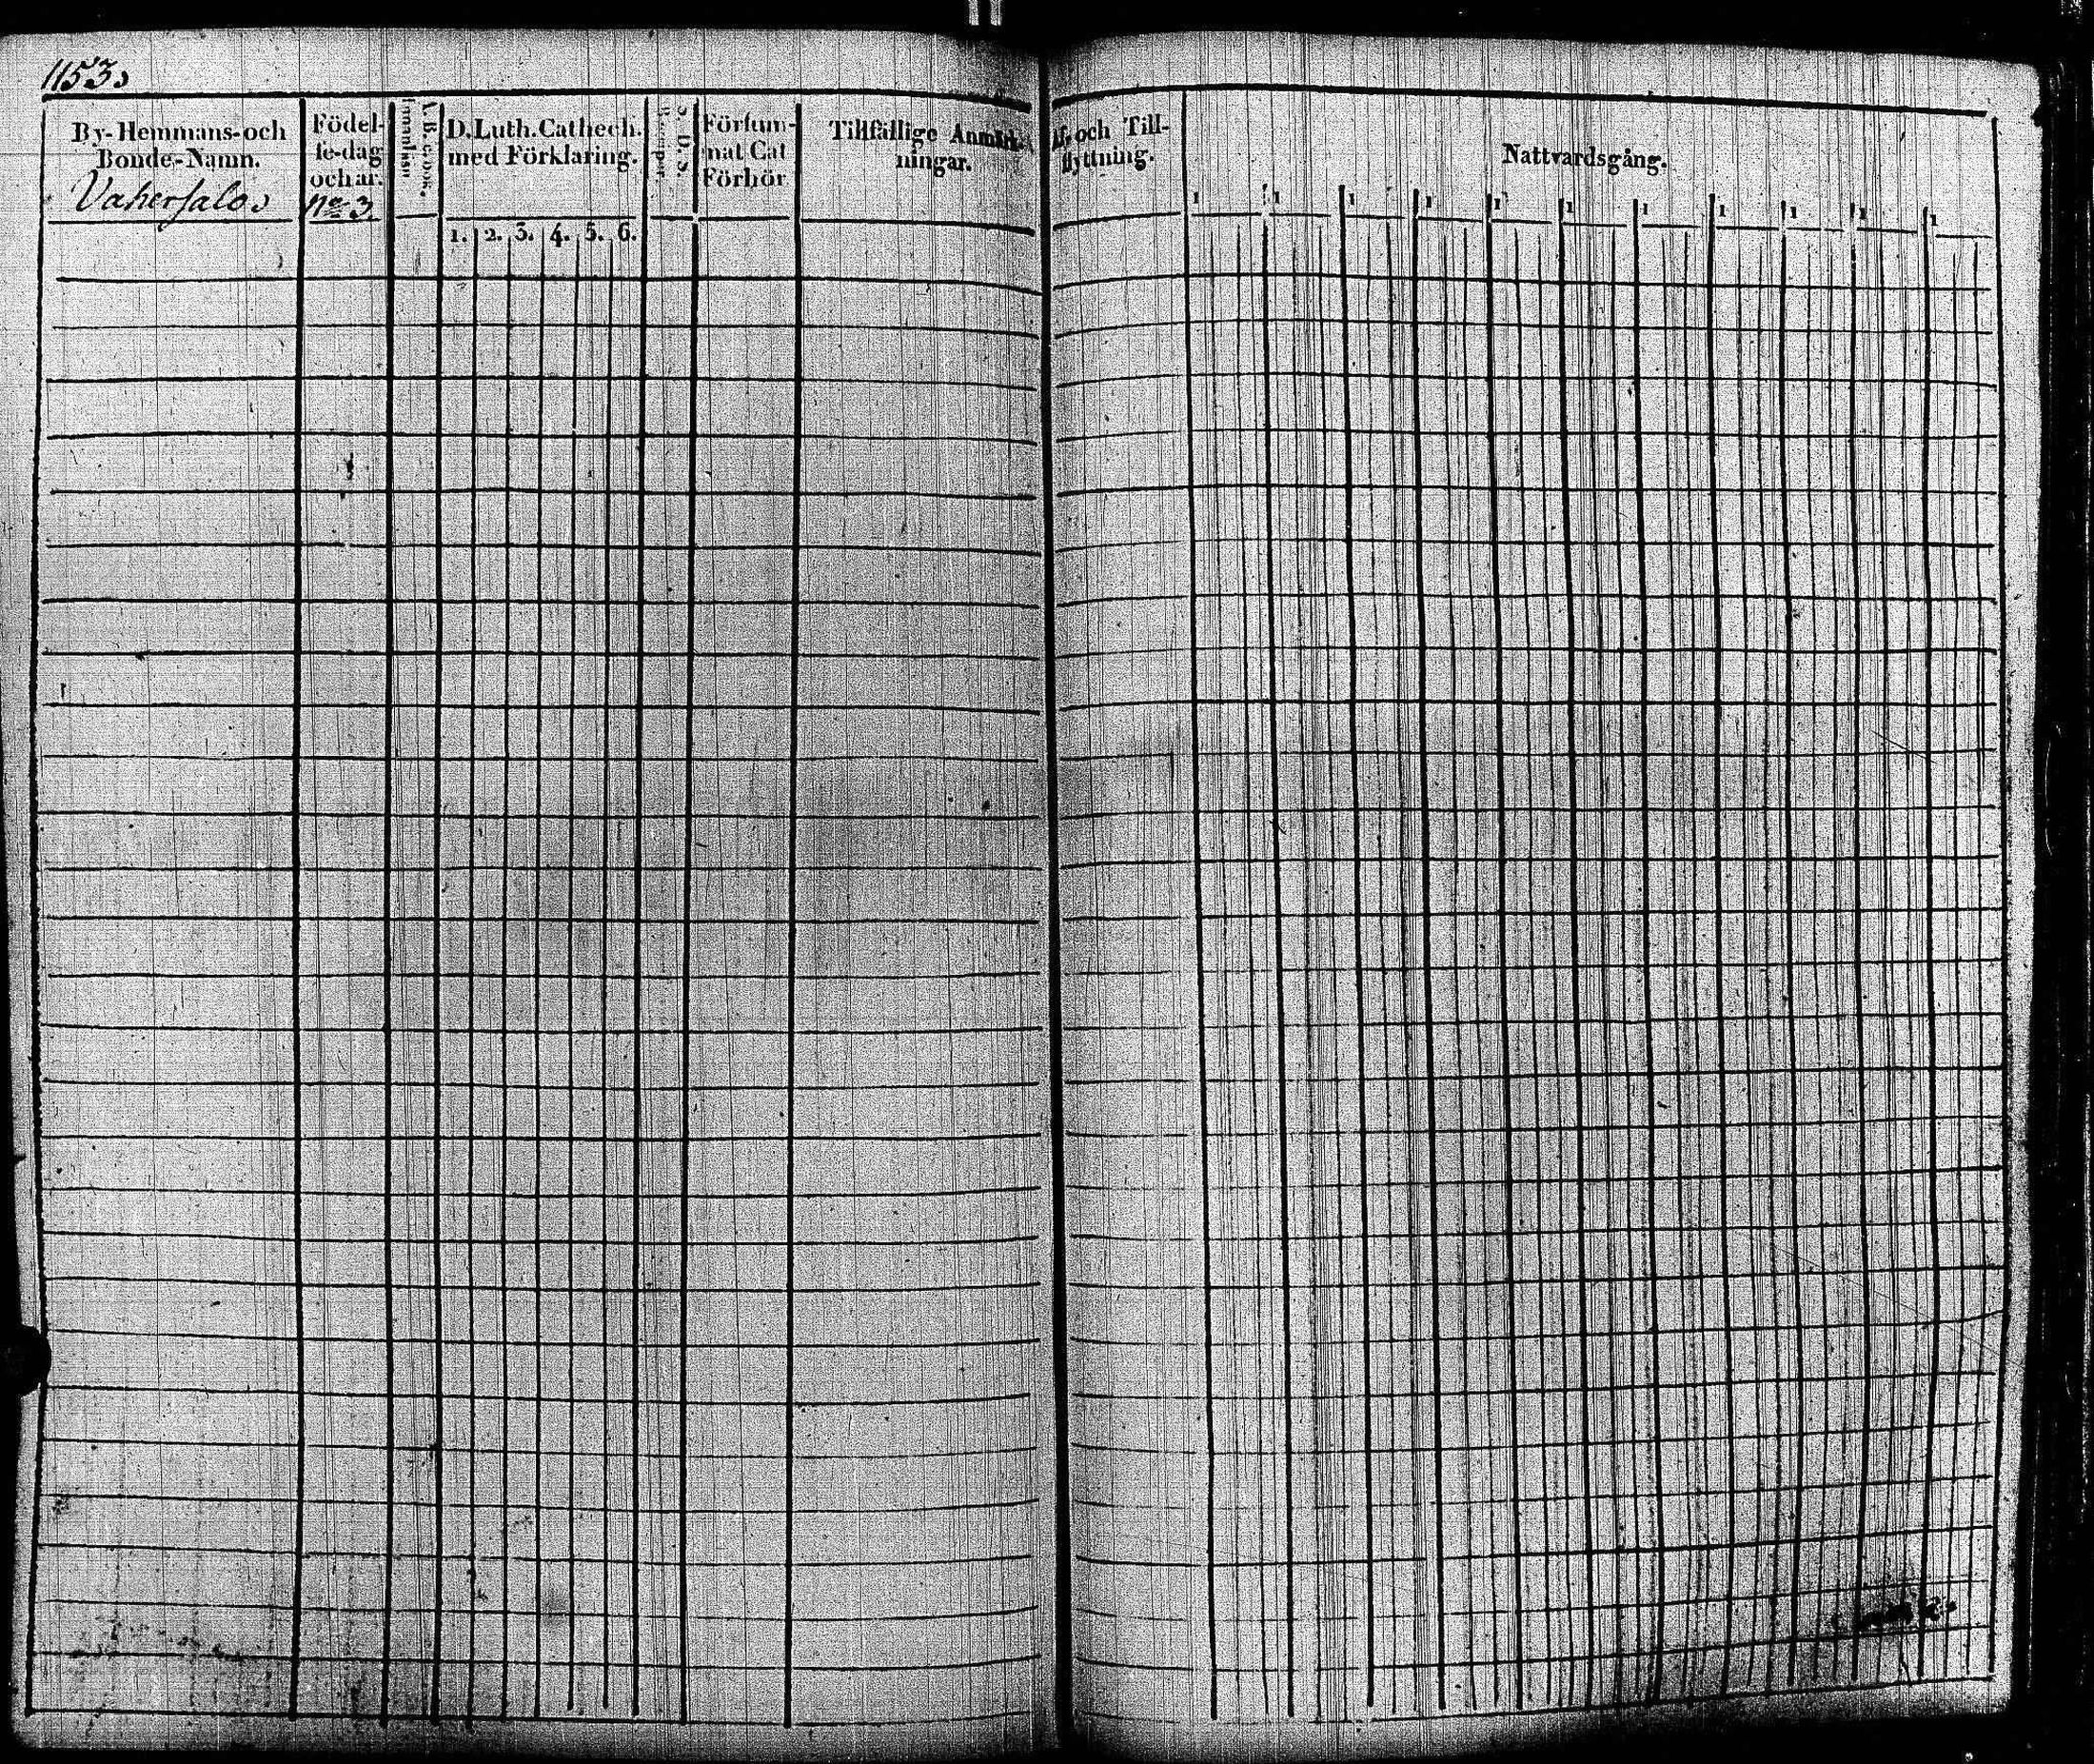 1153.
By- Hemmans- och
Bonde-Namn.
Vakersalo.
Födel-
se-dag
och år.
No 3.
A. B. c. bok.
Innanläsn
D. Luth. Cathech.
med Förklaring.
1. 2. 3. 4. 5. 6.
Försum-
nat Cat
Förhör
Tillfällige Anmärk-
ningar.
Af- och Till-
flyttning.
Nattvardsgång.
1 1 1 1 1 1 1 1 1 1 1